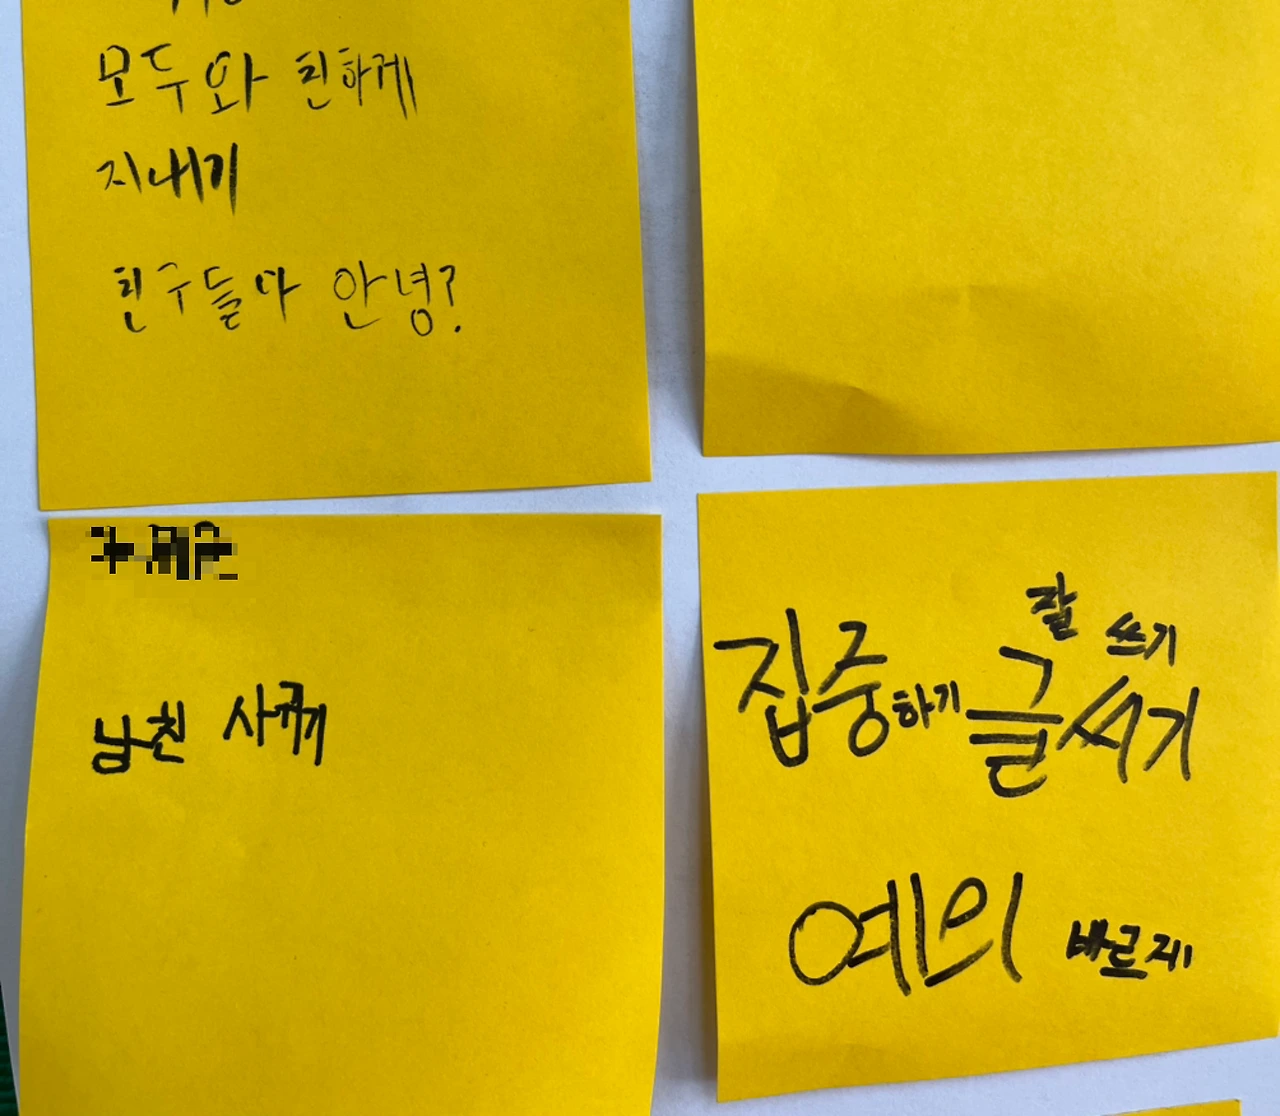 모두와 친하게
지내기
친구들아 안녕?
남친 사귀기
잘 쓰기
집중하기 글씨기
예의 바르게